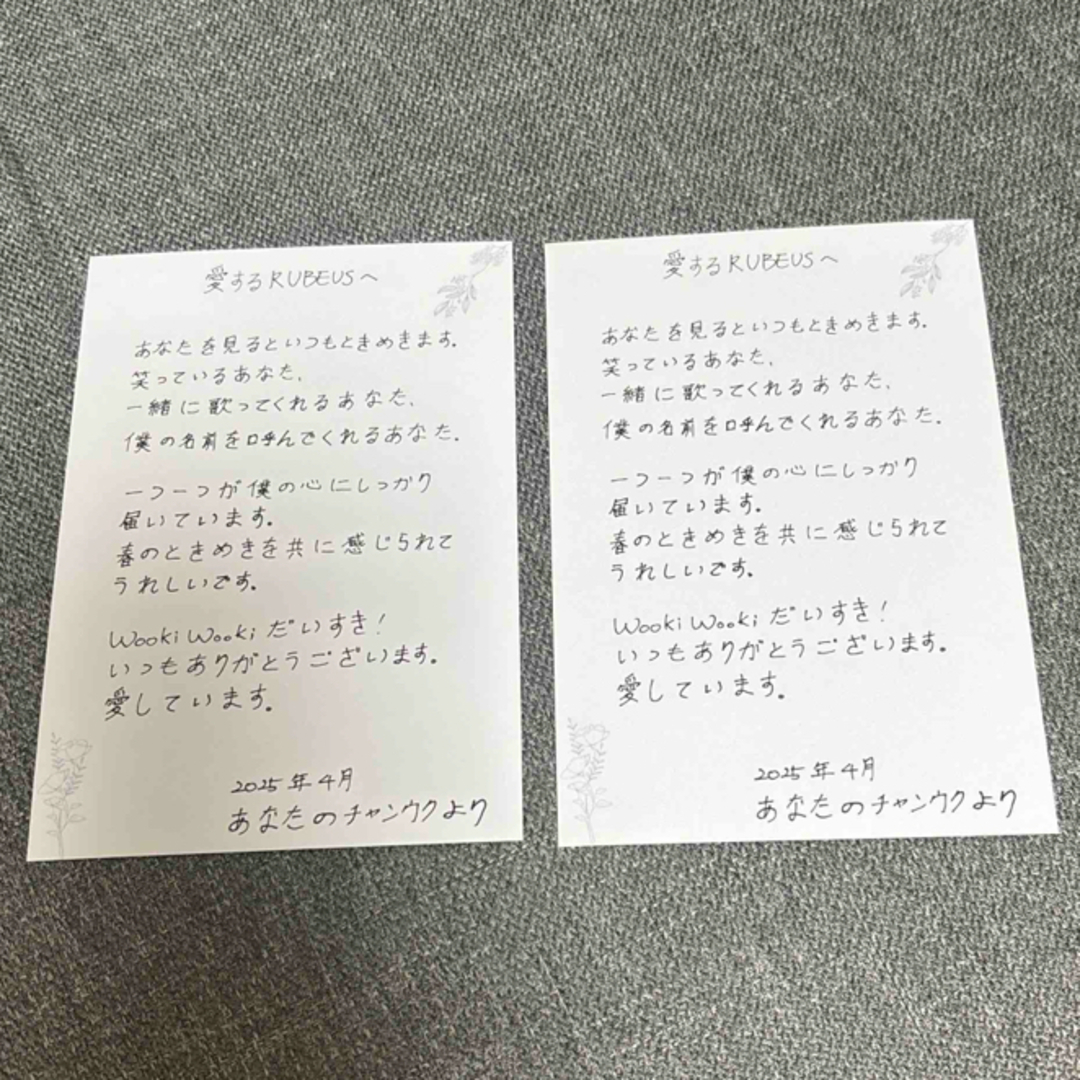 愛するRUBEUSへ
あなたを見るといつもときめきます。
笑っているあなた、
一緒に歌ってくれるあなた、
僕の名前を呼んでくれるあなた。
一つ一つが僕の心にしっかり
届いています。
春のときめきを共に感じられて
うれしいです。
Wooki Wooki だいすき！
いつもありがとうございます。
愛しています。
2025年4月
あなたのチャンウクより
愛するRUBEUSへ
あなたを見るといつもときめきます。
笑っているあなた、
一緒に歌ってくれるあなた、
僕の名前を呼んでくれるあなた。
一つ一つが僕の心にしっかり
届いています。
春のときめきを共に感じられて
うれしいです。
Wooki Wooki だいすき！
いつもありがとうございます。
愛しています。
2025年4月
あなたのチャンウクより